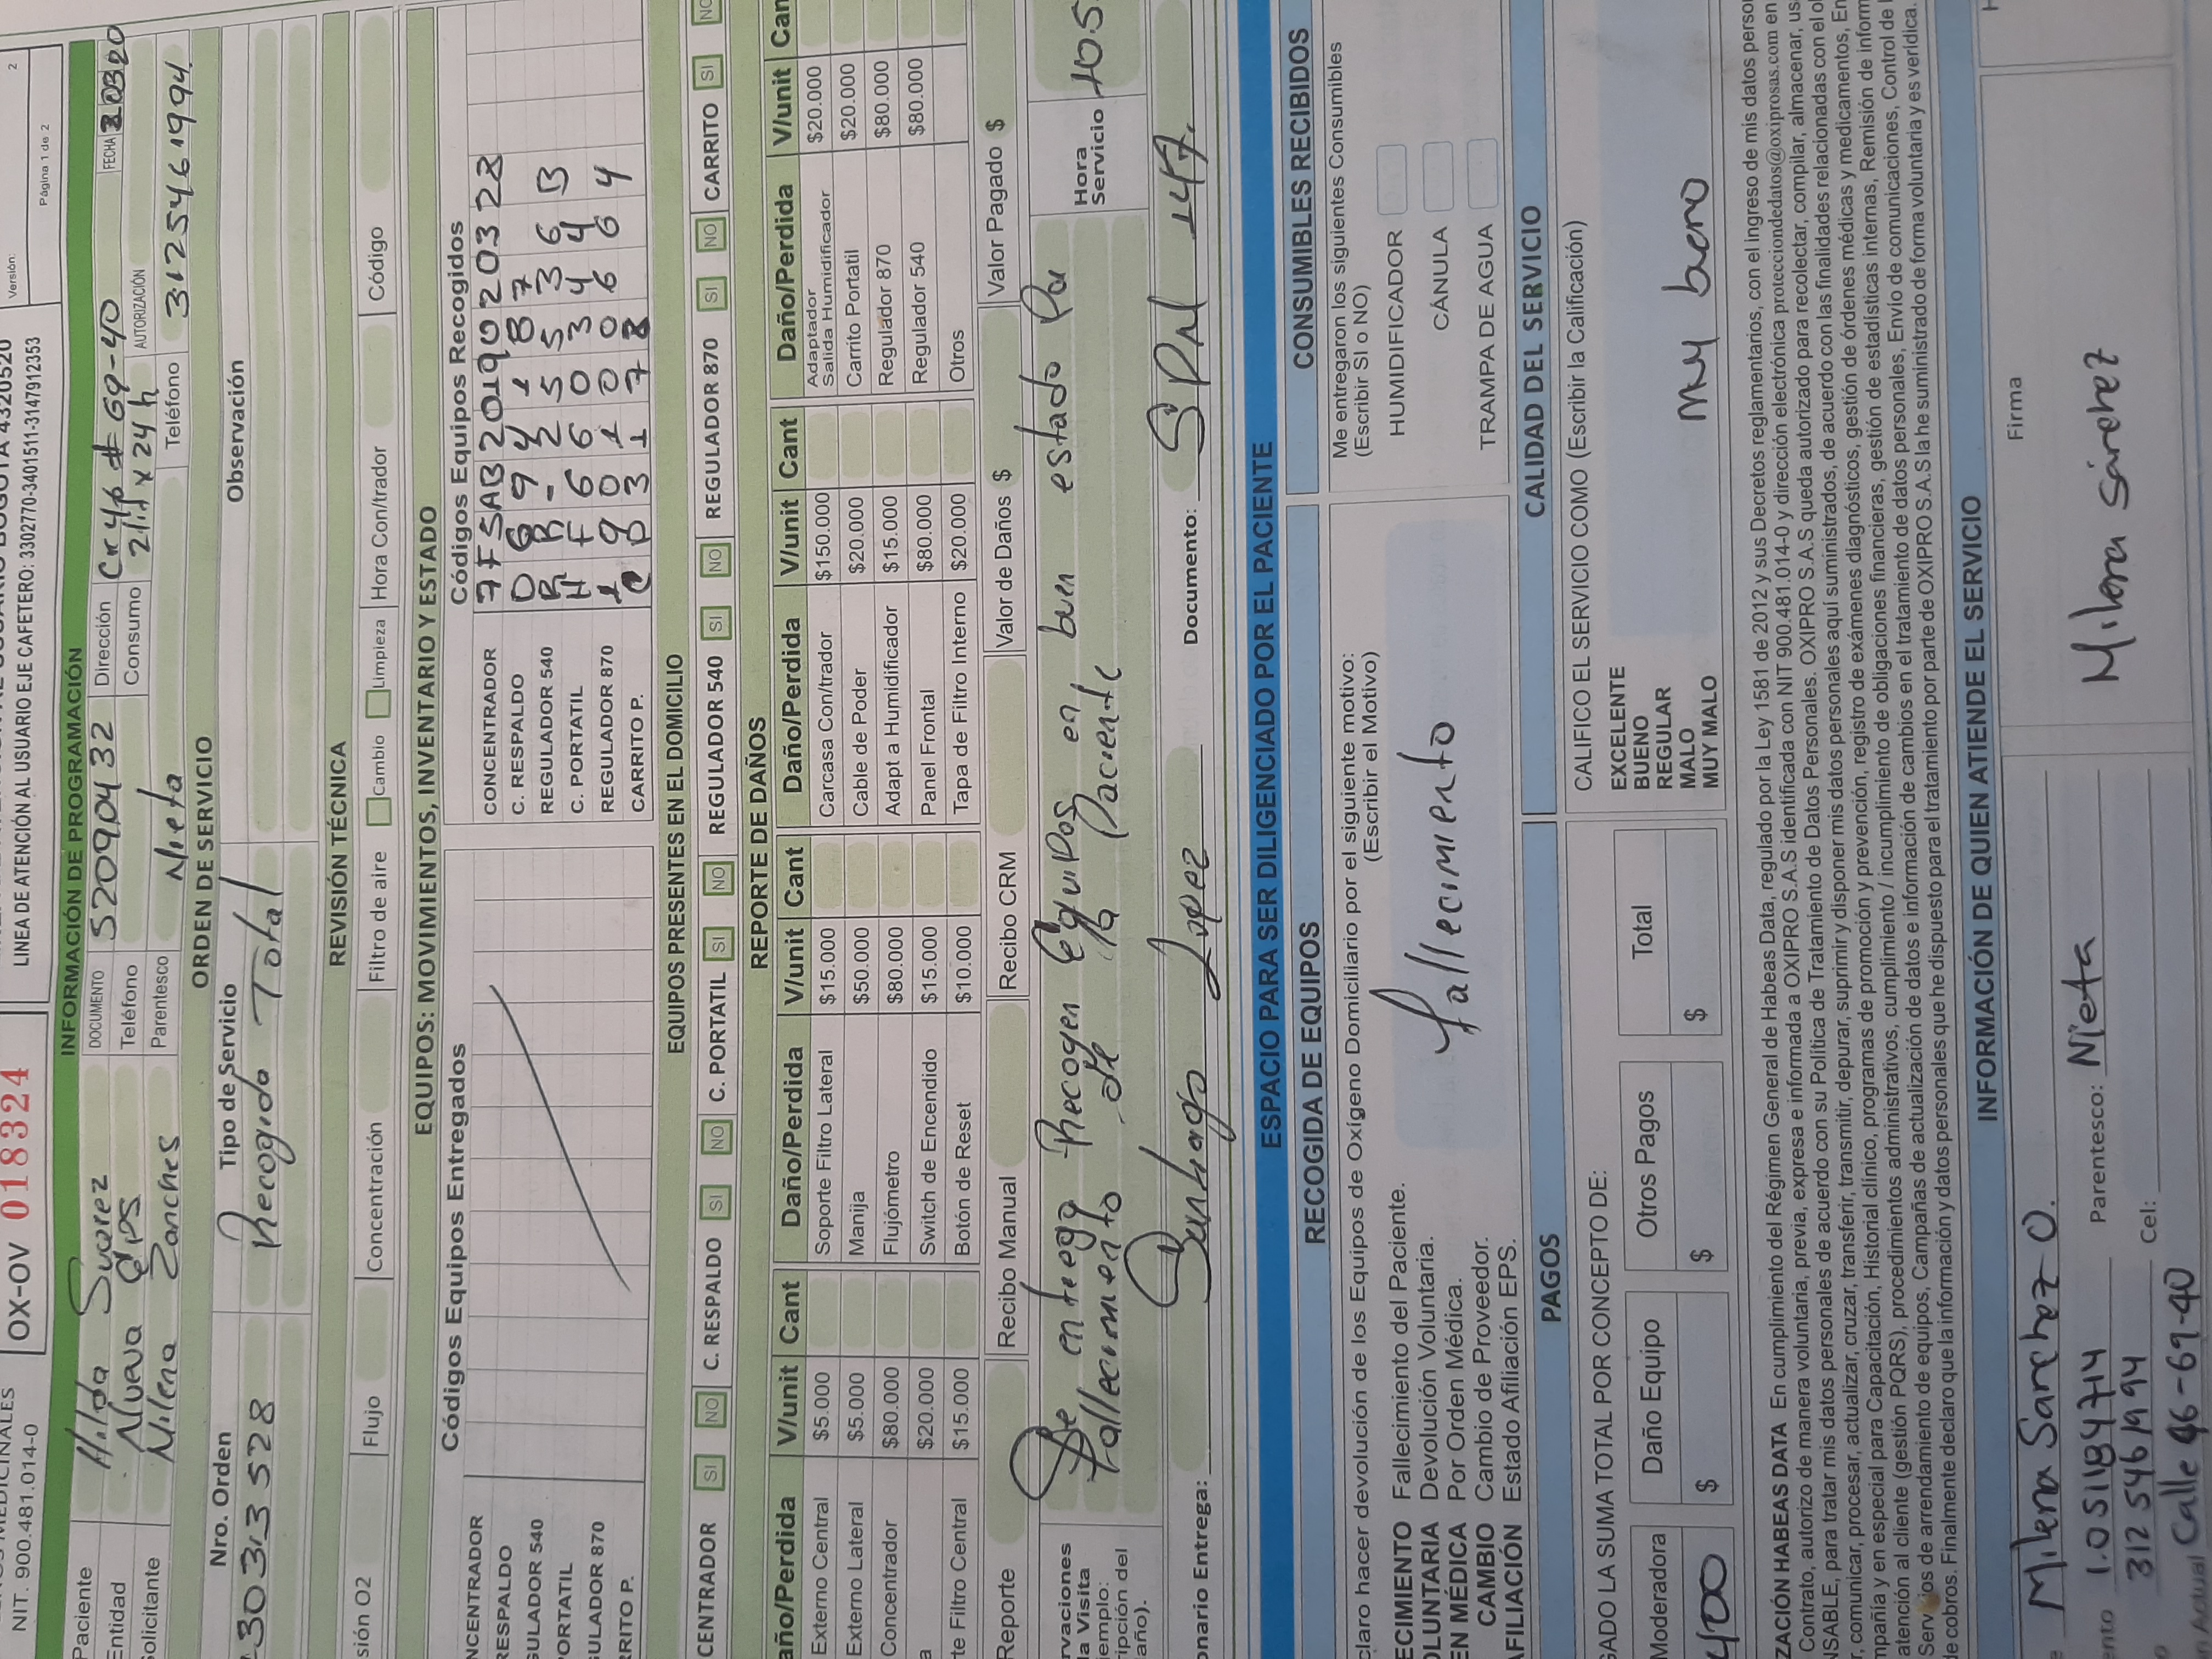 NIT. 900.481.014-0
OX-OV 018324
LINEA DE ATENCIÓN AL USUARIO EJE CAFETERO: 3302770-3401511-3147912353
Versión: 2
Página 1 de 2
INFORMACIÓN DE PROGRAMACIÓN
Paciente Hilda Suarez DOCUMENTO 52090432 Dirección Cr 46 # 69-40 FECHA
Entidad Nueva EPS Teléfono Consumo 2lit x 24 h AUTORIZACIÓN
Solicitante Milena Zanches Parentesco Nieta Teléfono 3125461994
ORDEN DE SERVICIO
Nro. Orden Tipo de Servicio Observación
30313528 Recogida Total
REVISIÓN TÉCNICA
sión O2 Flujo Concentración Filtro de aire Cambio Limpieza Hora Con/trador Código
EQUIPOS: MOVIMIENTOS, INVENTARIO Y ESTADO
Códigos Equipos Entregados Códigos Equipos Recogidos
NCENTRADOR CONCENTRADOR 7FSAB2019020328
RESPALDO C. RESPALDO
GULADOR 540 REGULADOR 540
ORTATIL C. PORTATIL
GULADOR 870 REGULADOR 870
RRITO P. CARRITO P.
EQUIPOS PRESENTES EN EL DOMICILIO
CENTRADOR SI NO C. RESPALDO SI NO C. PORTATIL SI NO REGULADOR 540 SI NO REGULADOR 870 SI NO CARRITO SI NO
REPORTE DE DAÑOS
año/Perdida V/unit Cant Daño/Perdida V/unit Cant Daño/Perdida V/unit Cant Daño/Perdida V/unit Can
Externo Central $5.000 Soporte Filtro Lateral $15.000 Carcasa Con/trador $150.000 Adaptador Salida Humidificador $20.000
Externo Lateral $5.000 Manija $50.000 Cable de Poder $20.000 Carrito Portatil $20.000
Concentrador $80.000 Flujómetro $80.000 Adapt a Humidificador $15.000 Regulador 870 $80.000
a $20.000 Switch de Encendido $15.000 Panel Frontal $80.000 Regulador 540 $80.000
te Filtro Central $15.000 Botón de Reset $10.000 Tapa de Filtro Interno $20.000 Otros
Reporte Recibo Manual Recibo CRM Valor de Daños $ Valor Pagado $
rvaciones
la Visita
iemplo:
ripción del
año).
Se entrega Recogen Equipos en buen estado Por
Fallecimiento de la Paciente
Hora Servicio
onario Entrega: Santiago Lopez Documento:
ESPACIO PARA SER DILIGENCIADO POR EL PACIENTE
RECOGIDA DE EQUIPOS
claro hacer devolución de los Equipos de Oxígeno Domiciliario por el siguiente motivo:
(Escribir el Motivo)
ECIMIENTO Fallecimiento del Paciente.
OLUNTARIA Devolución Voluntaria.
EN MÉDICA Por Orden Médica.
CAMBIO Cambio de Proveedor.
AFILIACIÓN Estado Afiliación EPS.
fallecimiento
CONSUMIBLES RECIBIDOS
Me entregaron los siguientes Consumibles
(Escribir SI o NO)
HUMIDIFICADOR
CÁNULA
TRAMPA DE AGUA
PAGOS
GADO LA SUMA TOTAL POR CONCEPTO DE:
Moderadora Daño Equipo Otros Pagos Total
400 $ $ $
CALIDAD DEL SERVICIO
CALIFICO EL SERVICIO COMO (Escribir la Calificación)
EXCELENTE
BUENO
REGULAR
MALO
MUY MALO
muy bueno
ZACIÓN HABEAS DATA En cumplimiento del Régimen General de Habeas Data, regulado por la Ley 1581 de 2012 y sus Decretos reglamentarios, con el ingreso de mis datos person
Contrato, autorizo de manera voluntaria, previa, expresa e informada a OXIPRO S.A.S identificada con NIT 900.481.014-0 y dirección electrónica protecciondedatos@oxiprosas.com en
NSABLE, para tratar mis datos personales de acuerdo con su Política de Tratamiento de Datos Personales. OXIPRO S.A.S queda autorizado para recolectar, compilar, almacenar, us
r, comunicar, procesar, actualizar, cruzar, transferir, transmitir, depurar, suprimir y disponer mis datos personales aquí suministrados, de acuerdo con las finalidades relacionadas con el o
mpañía y en especial para Capacitación, Historial clínico, programas de promoción y prevención, registro de exámenes diagnósticos, gestión de órdenes médicas y medicamentos, En
atención al cliente (gestión PQRS), procedimientos administrativos, cumplimiento / incumplimiento de obligaciones financieras, gestión de estadísticas internas, Remisión de inform
Servicios de arrendamiento de equipos, Campañas de actualización de datos e información de cambios en el tratamiento de datos personales, Envío de comunicaciones, Control de
de cobros. Finalmente declaro que la información y datos personales que he dispuesto para el tratamiento por parte de OXIPRO S.A.S la he suministrado de forma voluntaria y es verídica.
INFORMACIÓN DE QUIEN ATIENDE EL SERVICIO
Milena Sanchez O. Firma
ento 1.051184714 Parentesco: Nieta Milena Sánchez
3125461994 Cel:
Actual Calle 46-69-40